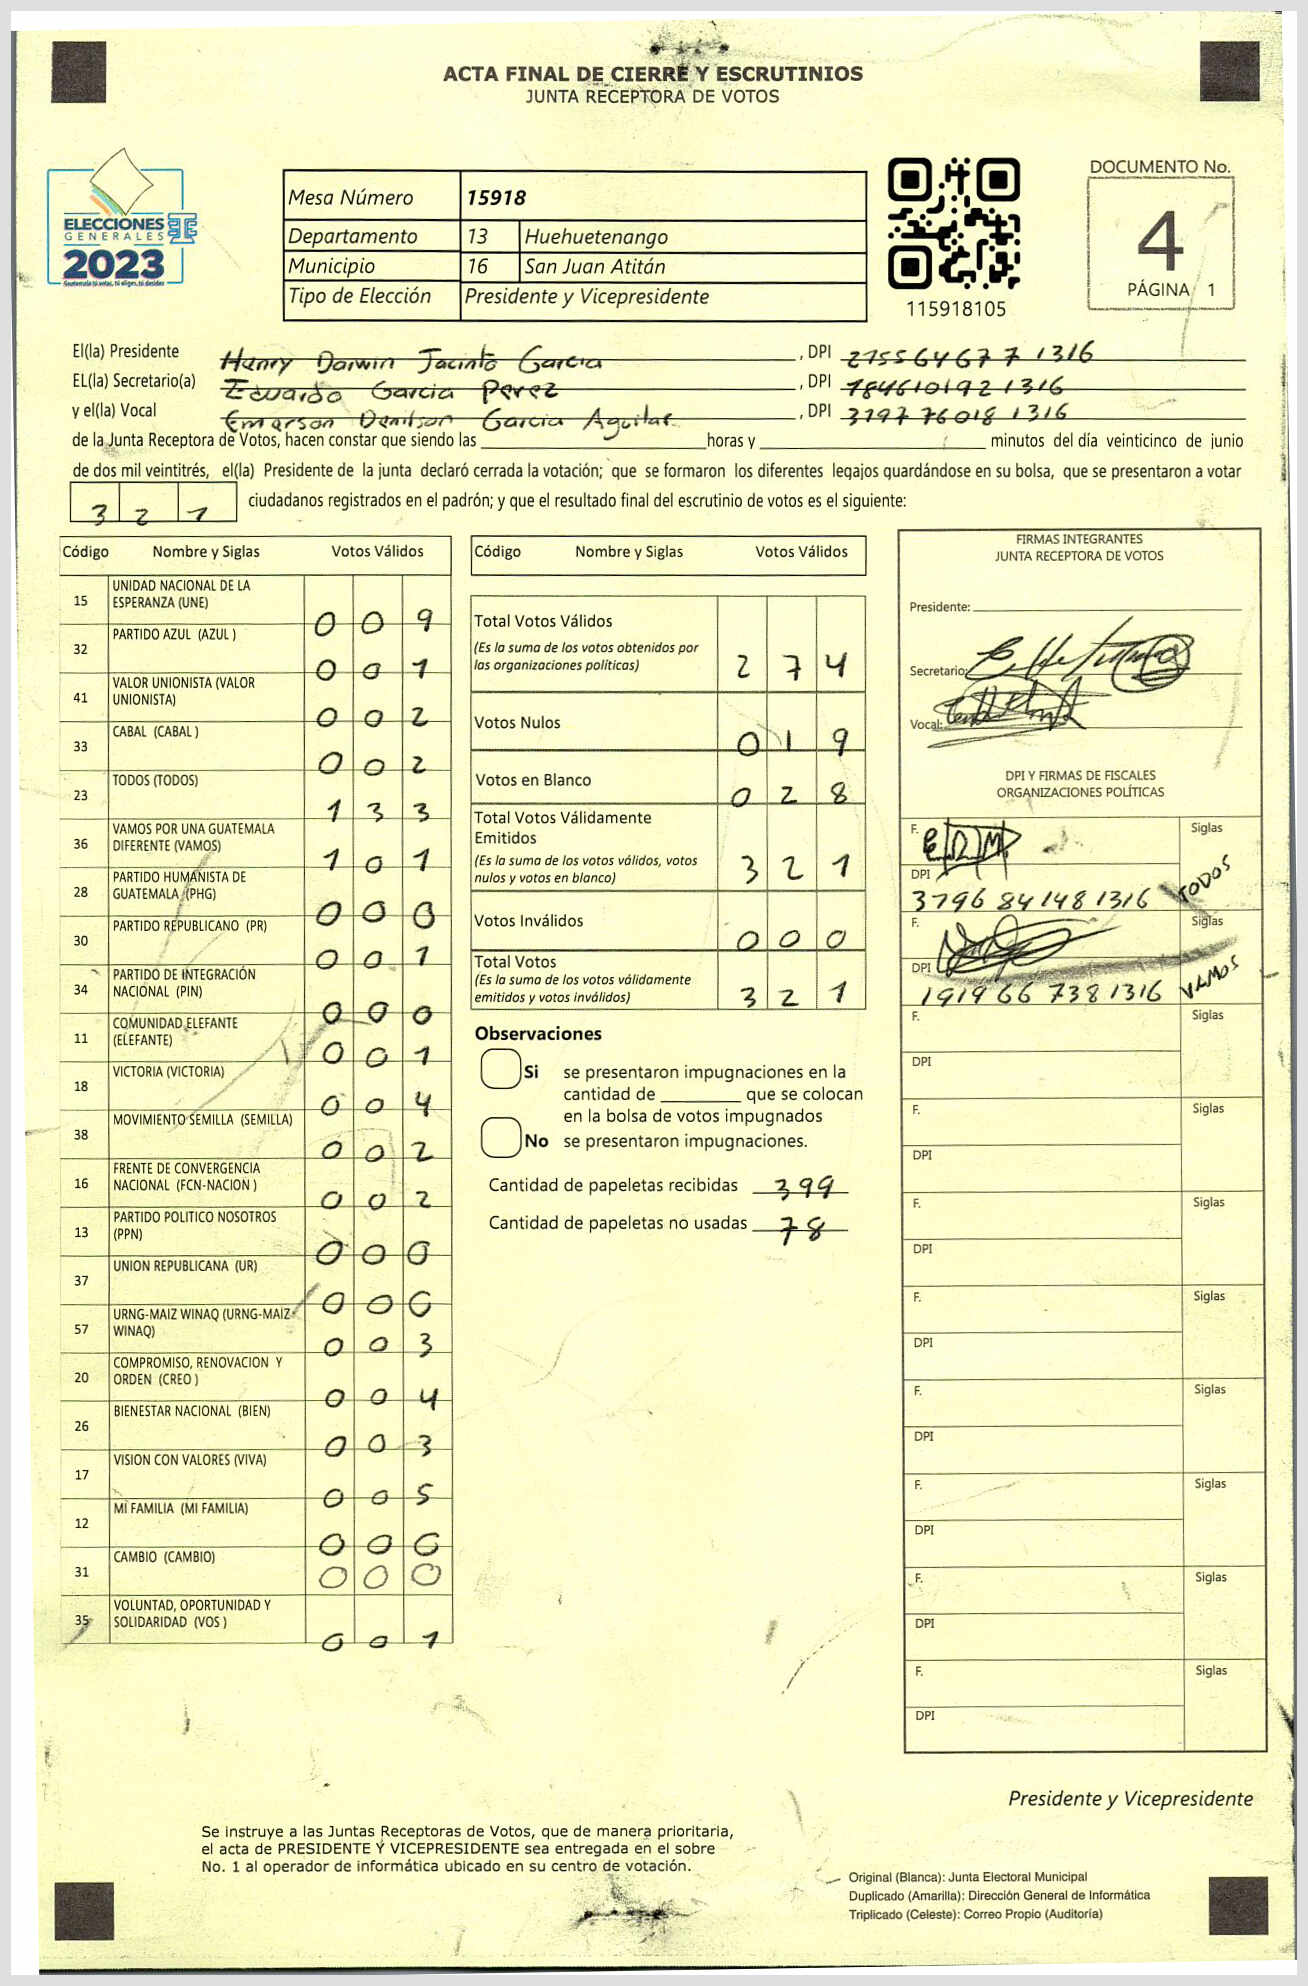 ACTA FINAL DE CIERRE Y ESCRUTINIOS
JUNTA RECEPTORA DE VOTOS
ELECCIONES
GENERALES
2023
Guatemala tú votas, tú eliges, tú decides
Mesa Número 15918
Departamento 13 Huehuetenango
Municipio 16 San Juan Atitán
Tipo de Elección Presidente y Vicepresidente
115918105
DOCUMENTO No.
4
PÁGINA 1
El(la) Presidente Henry Darwin Jacinto Garcia , DPI 2755 64677 1316
EL(la) Secretario(a) Eduardo Garcia Perez , DPI 784610192 1316
y el(la) Vocal Emerson Denilson Garcia Aguilar , DPI 3797 76018 1316
de la Junta Receptora de Votos, hacen constar que siendo las horas y minutos del día veinticinco de junio
de dos mil veintitrés, el(la) Presidente de la junta declaró cerrada la votación; que se formaron los diferentes legajos guardándose en su bolsa, que se presentaron a votar
321 ciudadanos registrados en el padrón; y que el resultado final del escrutinio de votos es el siguiente:
Código Nombre y Siglas Votos Válidos
15 UNIDAD NACIONAL DE LA ESPERANZA (UNE) 0 0 9
32 PARTIDO AZUL (AZUL ) 0 0 1
41 VALOR UNIONISTA (VALOR UNIONISTA) 0 0 2
33 CABAL (CABAL ) 0 0 2
23 TODOS (TODOS) 1 3 3
36 VAMOS POR UNA GUATEMALA DIFERENTE (VAMOS) 1 0 1
28 PARTIDO HUMANISTA DE GUATEMALA (PHG) 0 0 0
30 PARTIDO REPUBLICANO (PR) 0 0 1
34 PARTIDO DE INTEGRACIÓN NACIONAL (PIN) 0 0 0
11 COMUNIDAD ELEFANTE (ELEFANTE) 0 0 1
18 VICTORIA (VICTORIA) 0 0 4
38 MOVIMIENTO SEMILLA (SEMILLA) 0 0 2
16 FRENTE DE CONVERGENCIA NACIONAL (FCN-NACION ) 0 0 2
13 PARTIDO POLITICO NOSOTROS (PPN) 0 0 0
37 UNION REPUBLICANA (UR) 0 0 0
57 URNG-MAIZ WINAQ (URNG-MAIZ WINAQ) 0 0 3
20 COMPROMISO, RENOVACION Y ORDEN (CREO ) 0 0 4
26 BIENESTAR NACIONAL (BIEN) 0 0 3
17 VISION CON VALORES (VIVA) 0 0 5
12 MI FAMILIA (MI FAMILIA) 0 0 0
31 CAMBIO (CAMBIO) 0 0 0
35 VOLUNTAD, OPORTUNIDAD Y SOLIDARIDAD (VOS ) 0 0 1
Código Nombre y Siglas Votos Válidos
Total Votos Válidos 2 7 4
(Es la suma de los votos obtenidos por
las organizaciones políticas)
Votos Nulos 0 1 9
Votos en Blanco 0 2 8
Total Votos Válidamente
Emitidos 3 2 1
(Es la suma de los votos válidos, votos
nulos y votos en blanco)
Votos Inválidos 0 0 0
Total Votos 3 2 1
(Es la suma de los votos válidamente
emitidos y votos inválidos)
Observaciones
Si se presentaron impugnaciones en la
cantidad de que se colocan
en la bolsa de votos impugnados
No se presentaron impugnaciones.
Cantidad de papeletas recibidas 399
Cantidad de papeletas no usadas 78
FIRMAS INTEGRANTES
JUNTA RECEPTORA DE VOTOS
Presidente:
Secretario:
Vocal:
DPI Y FIRMAS DE FISCALES
ORGANIZACIONES POLÍTICAS
F. Siglas TODOS
DPI 3796 84148 1316
F. Siglas VAMOS
DPI 1919 66 738 1316
F. Siglas
DPI
F. Siglas
DPI
F. Siglas
DPI
F. Siglas
DPI
F. Siglas
DPI
F. Siglas
DPI
F. Siglas
DPI
F. Siglas
DPI
Presidente y Vicepresidente
Se instruye a las Juntas Receptoras de Votos, que de manera prioritaria,
el acta de PRESIDENTE Y VICEPRESIDENTE sea entregada en el sobre
No. 1 al operador de informática ubicado en su centro de votación.
Original (Blanca): Junta Electoral Municipal
Duplicado (Amarilla): Dirección General de Informática
Triplicado (Celeste): Correo Propio (Auditoría)